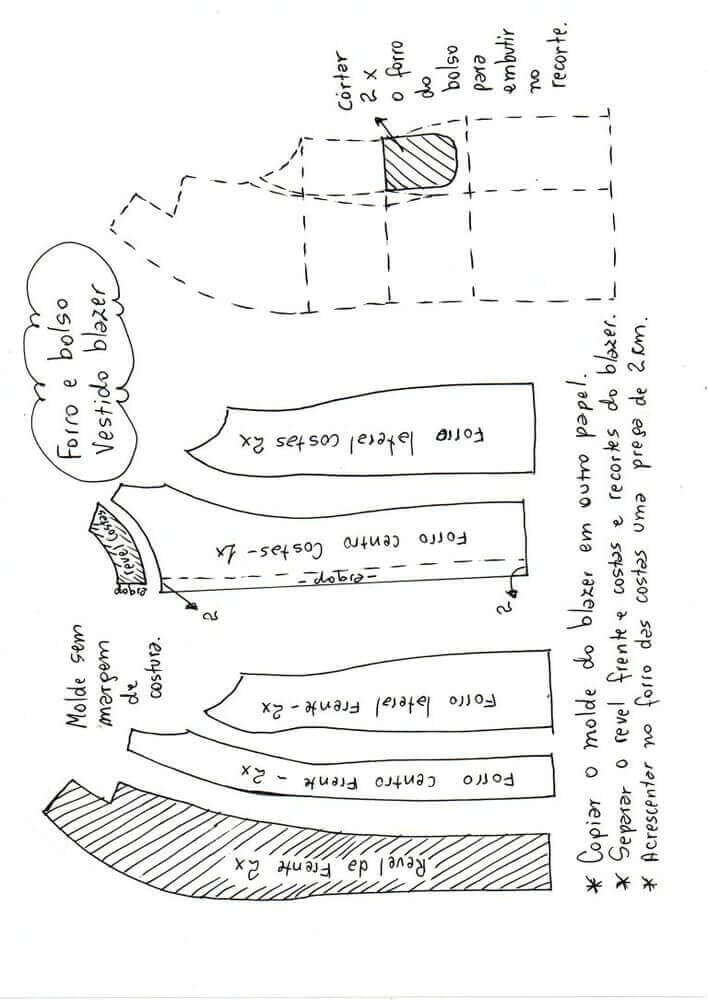 Forro e bolso
Vestido blazer
Molde sem
margem
de
costura.
Cortar
2x
o forro
do
bolso
para
embutir
no
recorte.
Revel da Frente 2x
Forro Centro Frente - 2x
Forro lateral Frente - 2x
revel costas
dobra
Forro centro Costas - 1x
- dobra -
2
2
Forro lateral costas 2x
* Copiar o molde do blazer em outro papel.
* Separar o revel frente e costas e recortes do blazer.
* Acrescentar no forro das costas uma prega de 2cm.